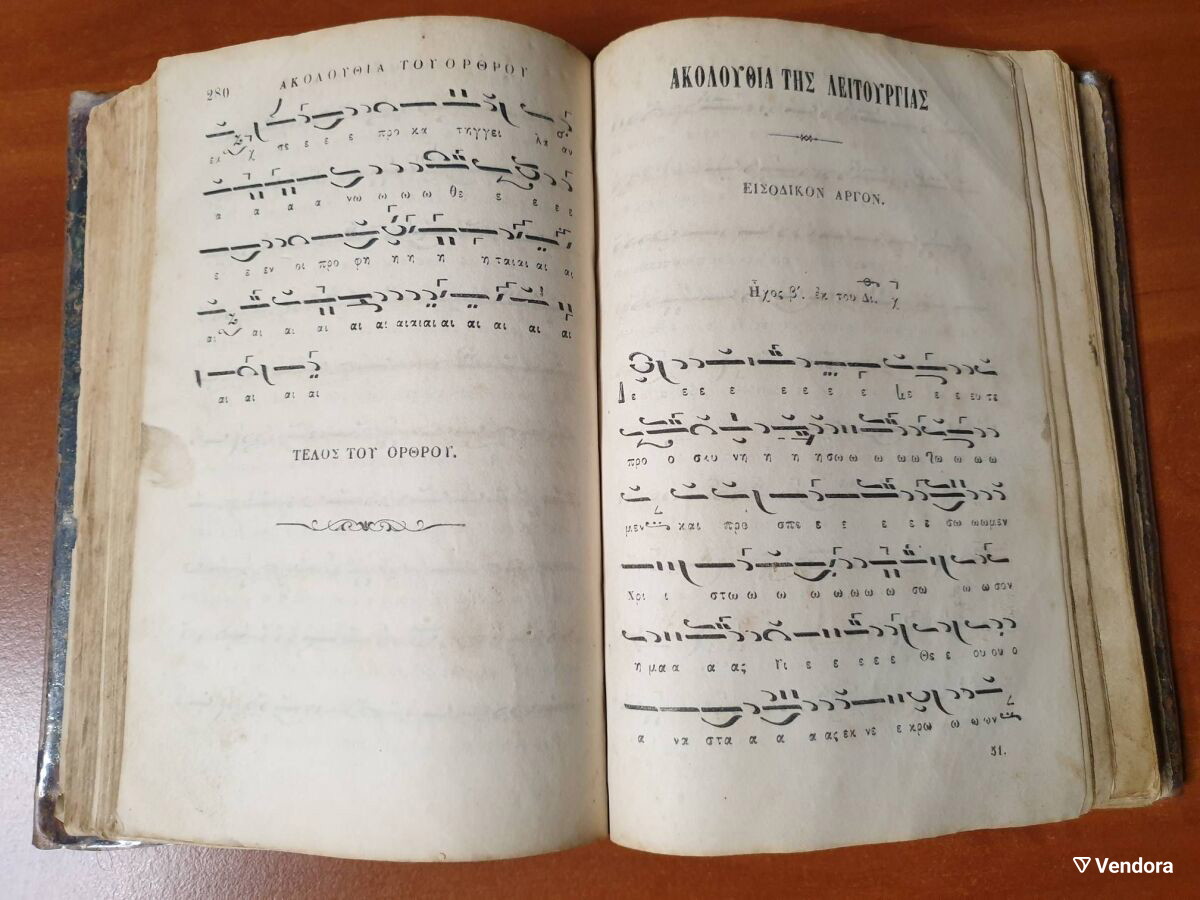 280 ΑΚΟΛΟΥΘΙΑ ΤΟΥ ΟΡΘΡΟΥ
εκ χ σε ε ε ε προ κα τηγγει λα αυ
α α α α νω ω ω ω θε ε ε ε ε
ε ε εν οι προ φη η η η η ται αι αι αι
αι αι αι αι αι αι αι αι αι αι αι αι αι αι
αι αι αι αι
ΤΕΛΟΣ ΤΟΥ ΟΡΘΡΟΥ.
ΑΚΟΛΟΥΘΙΑ ΤΗΣ ΛΕΙΤΟΥΡΓΙΑΣ
ΕΙΣΟΔΙΚΟΝ ΑΡΓΟΝ.
Ἦχος β΄. ἐκ του Δι. χ
Δε ε ε ε ε ε ε ε ε ε ευ τε
προ ο σκυ νη η η η σω ω ω ω ω ω ω ω
μεν και προ σπε ε ε ε ε ε σω ω ωμεν
Χρι ι στω ω ω ω ω ω ω ω σω ω ω σον
η μα α α ας Υι ε ε ε ε ε Θε ε ου ου ο
α να στα α α α ας εκ νε ε κρω ω ω ων
51.
Vendora